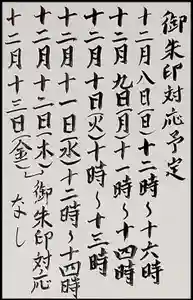 御朱印対応予定
十二月八日(日)十二時〜十六時
十二月九日(月)十一時〜十四時
十二月十日(火)十時〜十三時
十二月十一日(水)十二時〜十四時
十二月十二日(木)
十二月十三日(金)」御朱印対応
なし